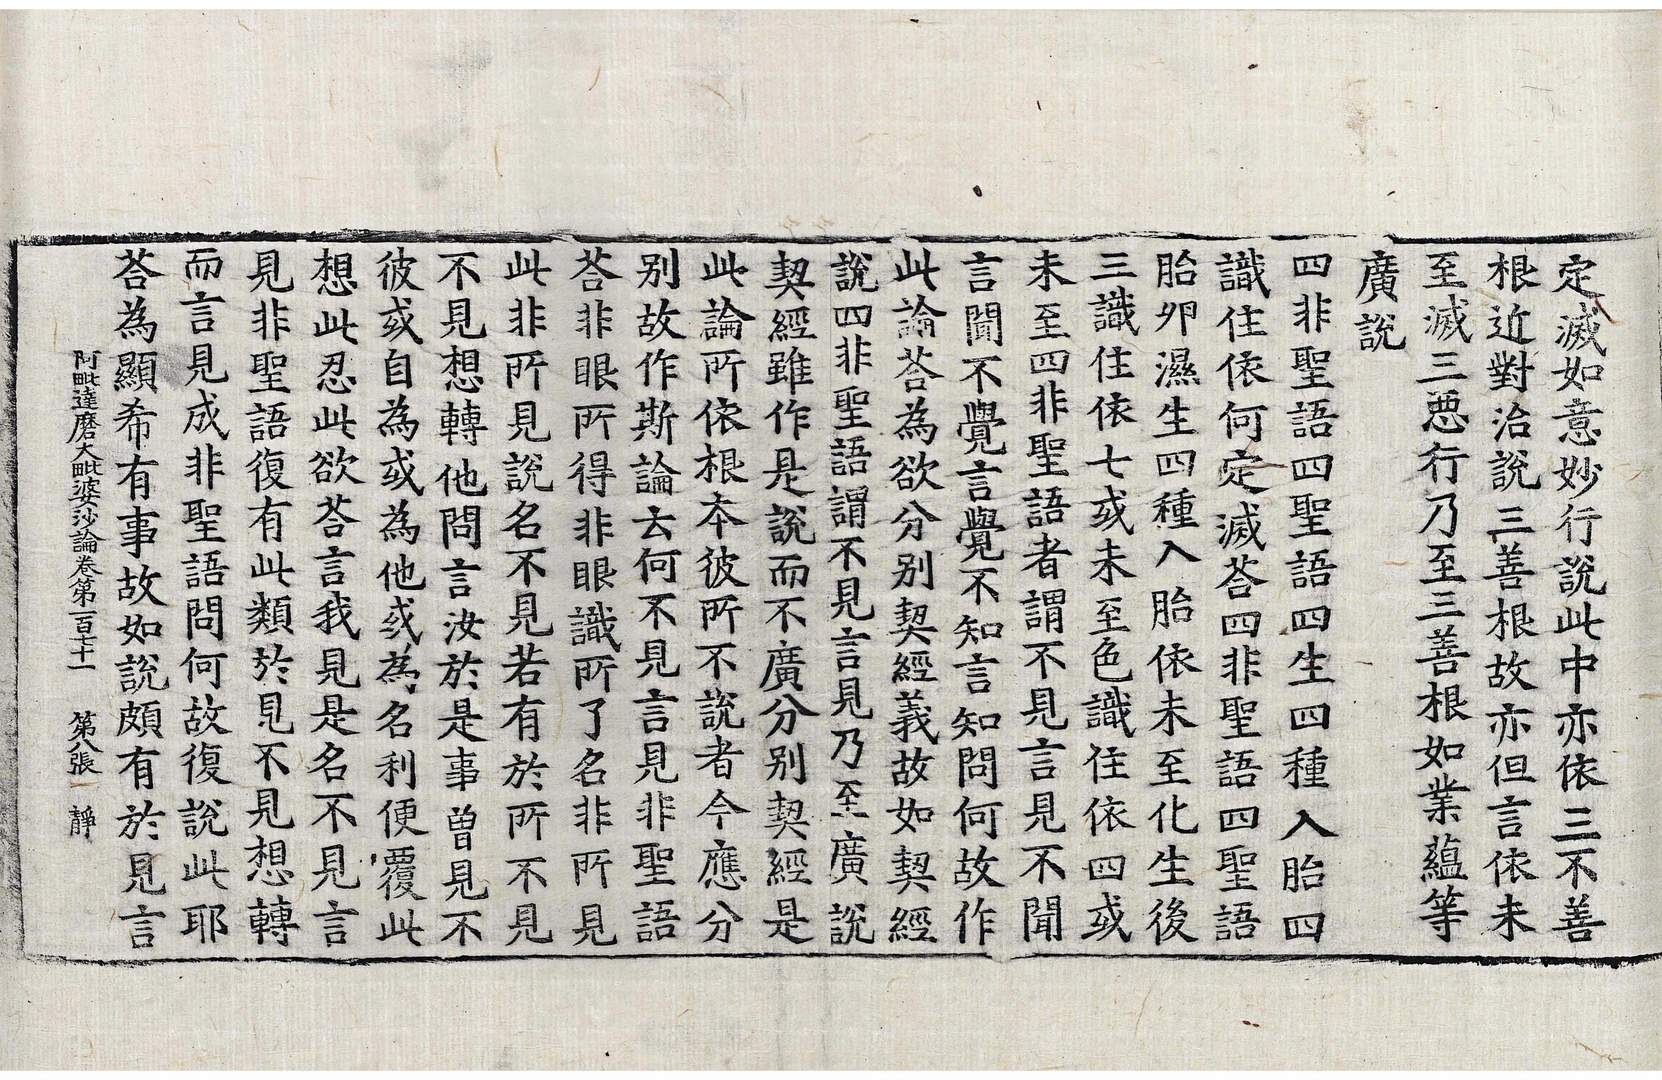 定滅如意妙行說此中亦依三不善
根近對治說三善根故亦但言依未
至滅三惡行乃至三善根如業蘊等
廣說
四非聖語四聖語四生四種入胎四
識住依何定滅荅四非聖語四聖語
胎卵濕生四種入胎依未至化生後
三識住依七或未至色識住依四或
未至四非聖語者謂不見言見不聞
言聞不覺言覺不知言知問何故作
此論荅為欲分別契經義故如契經
說四非聖語謂不見言見乃至廣說
契經雖作是說而不廣分別契經是
此論所依根本彼所不說者今應分
別故作斯論云何不見言見非聖語
荅非眼所得非眼識所了名非所見
此非所見說名不見若有於所不見
不見想轉他問言汝於是事曾見不
彼或自為或為他或為名利便覆此
想此忍此欲荅言我見是名不見言
見非聖語復有此類於見不見想轉
而言見成非聖語問何故復說此耶
荅為顯希有事故如說頗有於見言
阿毗達磨大毗婆沙論卷第一百七十一 第八張 靜